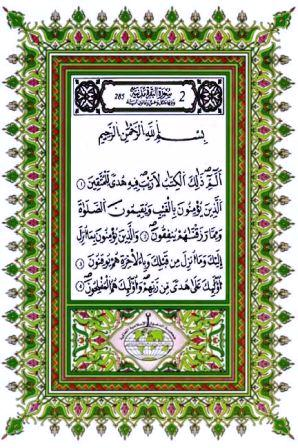 2 سورة البقرة مدنية 285
بسم الله الرحمن الرحيم
الم ذلك الكتب لا ريب فيه هدى للمتقين ١
الذين يؤمنون بالغيب ويقيمون الصلوة
ومما رزقنهم ينفقون ٢ والذين يؤمنون بما أنزل
إليك وما أنزل من قبلك وبالأخرة هم يوقنون ٤
أولئك على هدى من ربهم وأولئك هم المفلحون ٥